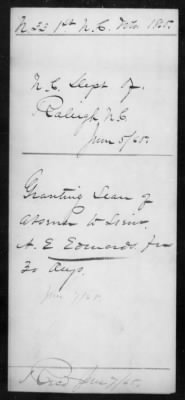 N 23 1st N.C. Vols. 1865.
N.C. Dept of.
Raleigh N.C.
June 5/65.
Granting Leave of
absence to Lieut.
A. E Edwards, for
30 days.
June 7/65.
Recd June 7/65.